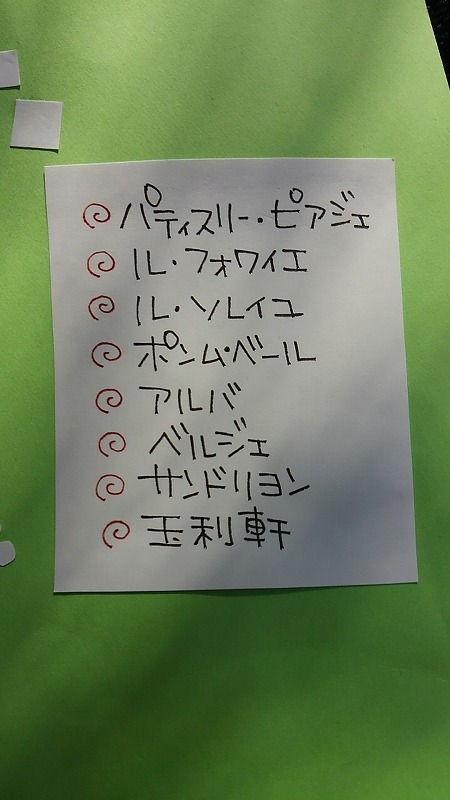 パティスリー・ピアジェ
ル・フォワイエ
ル・ソレイユ
ポンム・ベール
アルバ
ベルジェ
サンドリヨン
玉利軒